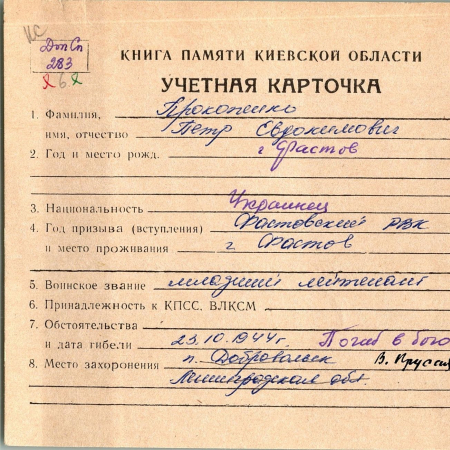 КС
Доп Сп
283
КНИГА ПАМЯТИ КИЕВСКОЙ ОБЛАСТИ
УЧЕТНАЯ КАРТОЧКА
1. Фамилия, Прокопенко
имя, отчество Петр Евдокимович
2. Год и место рожд. г Фастов
3. Национальность Украинец
4. Год призыва (вступления) Фастовский РВК
и место проживания г Фастов
5. Воинское звание младший лейтенант
6. Принадлежность к КПСС, ВЛКСМ
7. Обстоятельства
и дата гибели 23.10.1944г. Погиб в бою
8. Место захоронения п. Добровольск В. Пруссия
Ленинградская обл.